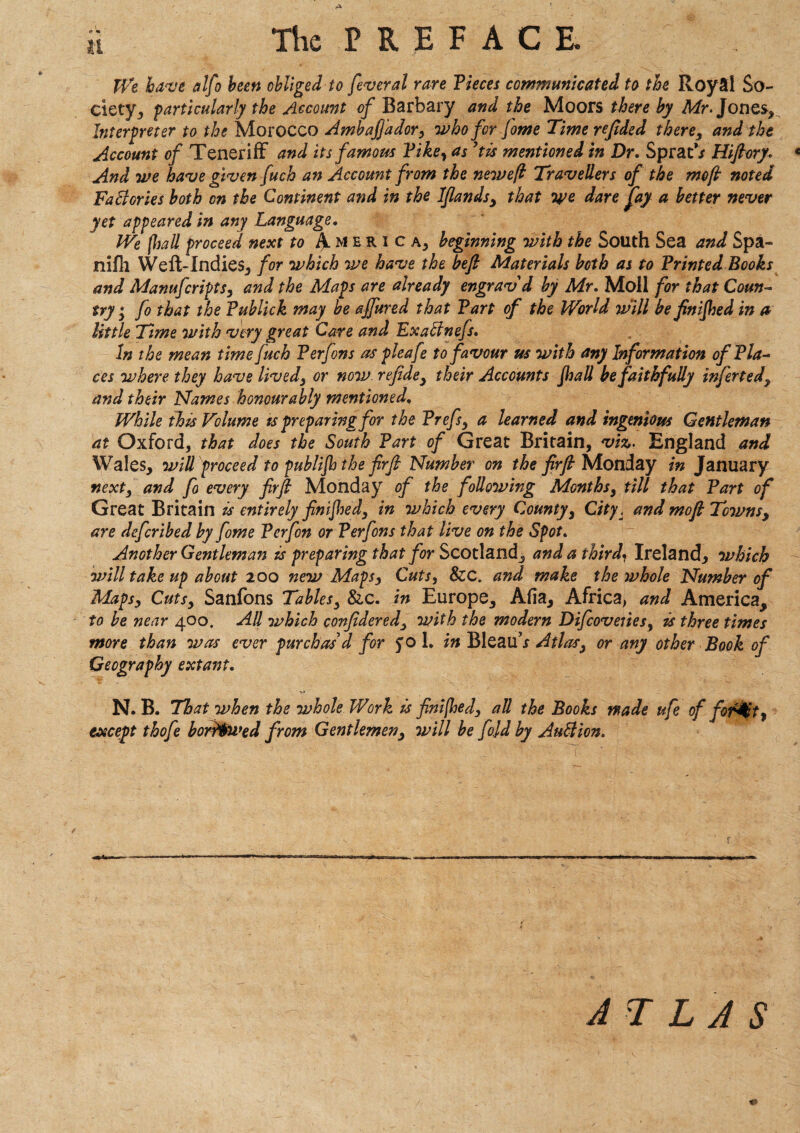 ii The PREFACE.
We have alſo been obliged to ſeveral rare Pieces communicated to the Royal So-
ciety, particularly the Account of Barbary and the Moors there by Mr. Jones,
Interpreter to the Morocco Ambaſſador, who for ſome Time reſided there, and the
Account of Teneriff and its famous Pike, as 'tis mentioned in Dr. Sprat's Hiſtory.
And we have given ſuch an Account from the neweſt Travellers of the moſt noted
Factories both on the Continent and in the Iſlands, that we dare ſay a better never
yet appeared in any Language.
We ſhall proceed next to AMERICA, beginning with the South Sea and Spa-
niſh Weſt-Indies, for which we have the beſt Materials both as to Printed Books
and Manuſcripts, and the Maps are already engrav'd by Mr. Moll for that Coun-
try; ſo that the Publick may be aſſured that Part of the World will be finiſhed in a
little Time with very great Care and Exactneſs.
In the mean time ſuch Perſons as pleaſe to favour us with any Information of Pla-
ces where they have lived, or now reſide, their Accounts ſhall be faithfully inſerted,
and their Names honourably mentioned.
While this Volume is preparing for the Preſs, a learned and ingenious Gentleman
at Oxford, that does the South Part of Great Britain, viz. England and
Wales, will proceed to publiſh the firſt Number on the firſt Monday in January
next, and ſo every firſt Monday of the following Months, till that Part of
Great Britain is entirely finiſhed, in which every County, City, and moſt Towns,
are deſcribed by ſome Perſon or Perſons that live on the Spot.
Another Gentleman is preparing that for Scotland, and a third, Ireland, which
will take up about 200 new Maps, Cuts, &c. and make the whole Number of
Maps, Cuts, Sanſons Tables, &c. in Europe, Aſia, Africa, and America,
to be near 400. All which conſidered, with the modern Diſcoveries, is three times
more than was ever purchas'd for 50 l. in Bleau's Atlas, or any other Book of
Geography extant.
N. B. That when the whole Work is finiſhed, all the Books made uſe of for it,
except thoſe borrowed from Gentlemen, will be ſold by Auction.
ATLAS